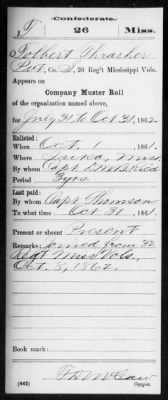 Confederate.
T 26 Miss.
Tolbert Thrasher
Pvt, Co. , 26 Reg't Mississippi Vols.
Appears on
Company Muster Roll
of the organization named above,
for July 31 to Oct 31, 1862.
Enlisted:
When Oct. 1, 1861.
Where Iuka, Miss.
By whom Capt.
Period
Last paid:
By whom Capt Thomson
To what time Oct 31, 1861.
Present or absent Present
Remarks: Joined from
Regt Miss Vols,
Oct. 8, 1862.
Book mark:
(642)